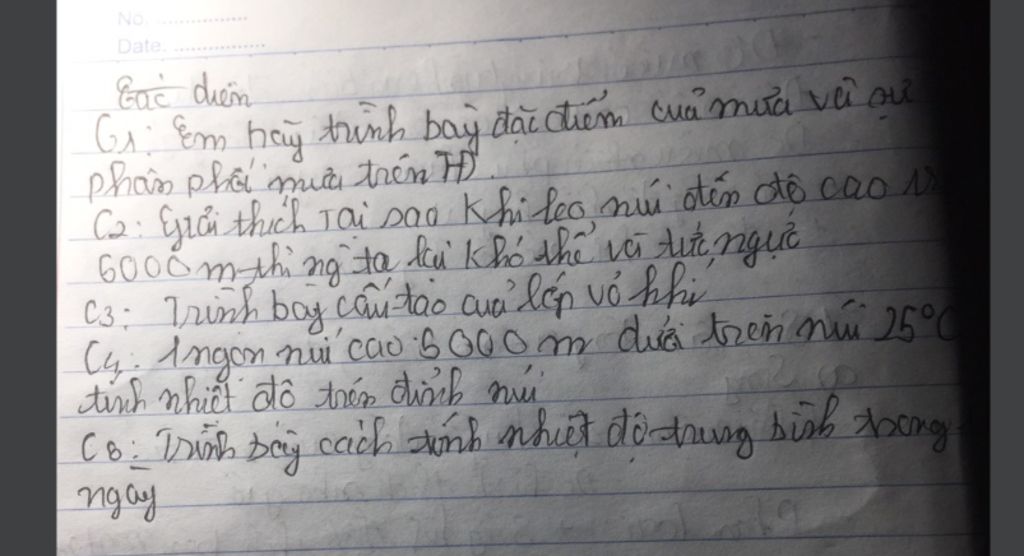 No.
Date.
Các điểm
C1: Em hãy trình bày đặc điểm của mưa và sự
phân phối mưa trên TĐ.
C2: Giải thích Tại sao khi leo núi đến độ cao
6000m thì ng ta lại khó thở và tức ngực
C3: Trình bày cấu tạo của lớp vỏ khí
C4: 1 ngọn núi cao 6000m dưới trên núi 25°C
tính nhiệt độ trên đỉnh núi
C5: Trình bày cách tính nhiệt độ trung bình trong
ngay